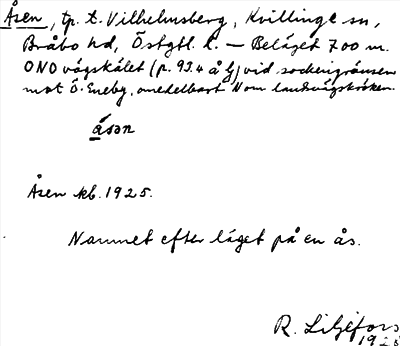 Åsen, tp. t. Vilhelmsberg, Kvillinge sn,
Bråbo hd, Östgtl. l. — Beläget 700 m.
ONO vägskälet (p. 93.4 å ) vid sockengränsen
mot Ö. Eneby, omedelbart N om landsvägskröken.
åsən
Åsen kb. 1925.
Namnet efter läget på en ås.
R. Liljefors